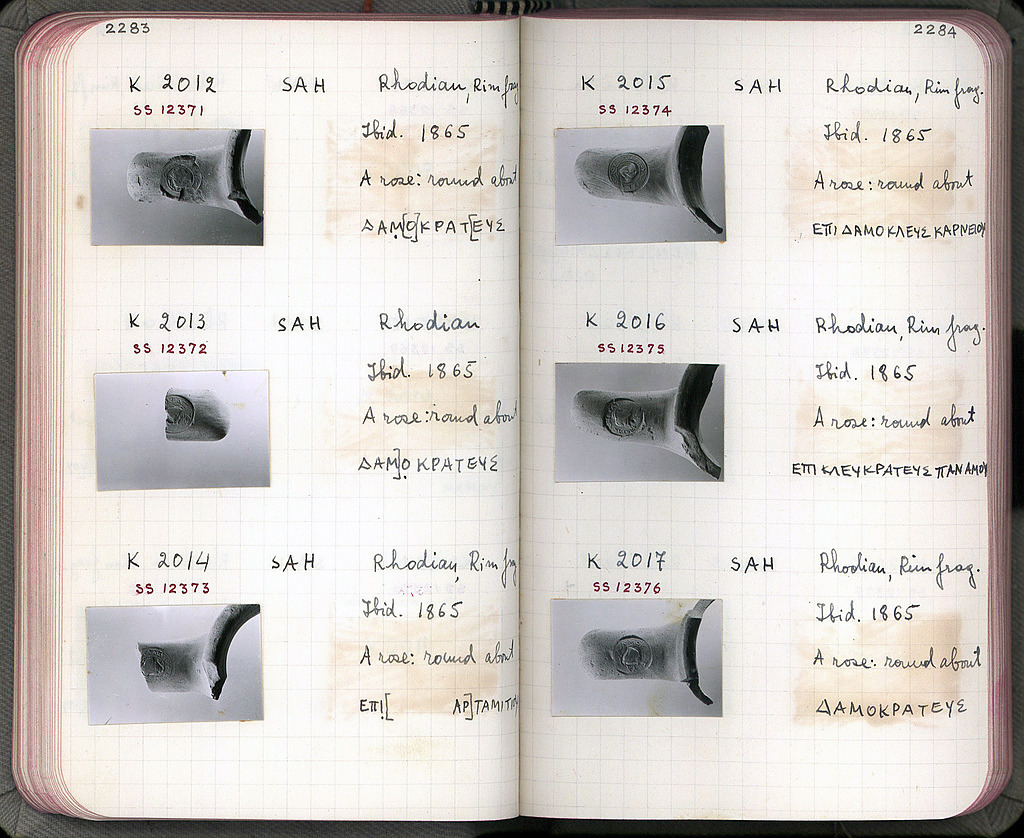 2283
K 2012 SAH Rhodian, Rim frag
SS 12371
Ibid. 1865
A rose: round about
ΔΑΜ[Ο]ΚΡΑΤ[ΕΥΣ
K 2013 SAH Rhodian
SS 12372
Ibid. 1865
A rose: round about
ΔΑΜ]Ο ΚΡΑΤΕΥΣ
K 2014 SAH Rhodian, Rim frag
SS 12373
Ibid. 1865
A rose: round about
ΕΠΙ[ ΑΡ]ΤΑΜΙΤΙΟΥ
2284
K 2015 SAH Rhodian, Rim frag.
SS 12374
Ibid. 1865
A rose: round about
ΕΠΙ ΔΑΜΟΚΛΕΥΣ ΚΑΡΝΕΙΟΥ
K 2016 SAH Rhodian, Rim frag.
SS 12375
Ibid. 1865
A rose: round about
ΕΠΙ ΚΛΕΥΚΡΑΤΕΥΣ ΠΑΝΑΜΟΥ
K 2017 SAH Rhodian, Rim frag.
SS 12376
Ibid. 1865
A rose: round about
ΔΑΜΟΚΡΑΤΕΥΣ